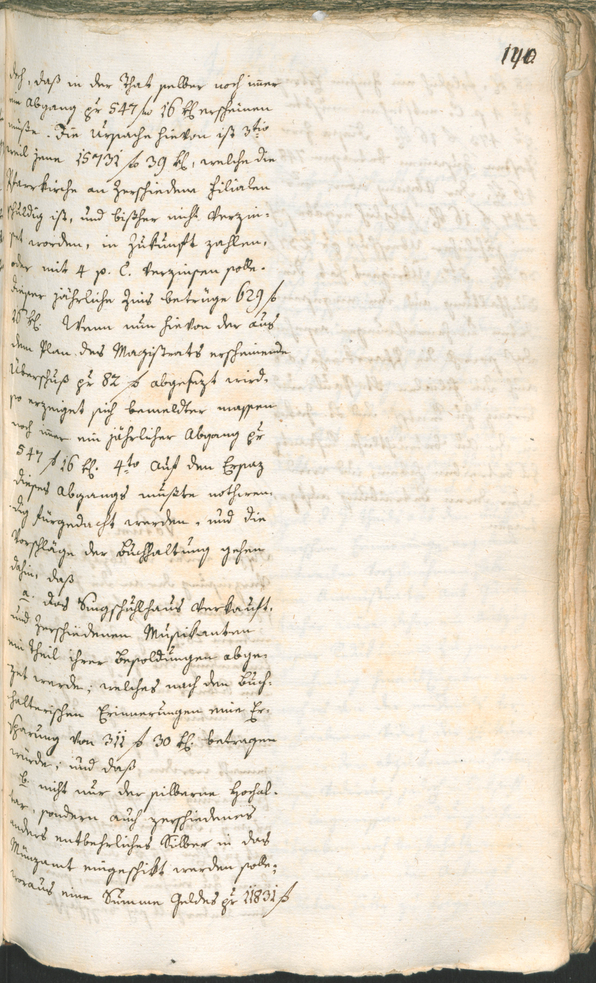 140
doch, daß in der That selber noch immer
ein Abgang pr 547 f 16 kr erscheinen
müßte. Die Ursache hievon ist 3tio
weil jene 15731 f 39 kr, welche die
Pfarrkirche an zerschiedene Filialen
schuldig ist, und bißher nicht verzin-
set worden, in Zukunft zahlen,
oder mit 4 p. C. verzinsen solle.
dieser jährliche Zins betrüge 629 f
16 kr. Wenn nun hievon der aus
dem Plan des Magistrats erscheinende
Überschuß pr 82 f abgesezt wird,
so erzeiget sich bemeldter massen
noch immer ein jährlicher Abgang pr
547 f 16 kr. 4to Auf den Ersaz
dieses Abgangs müßte nothwen-
dig fürgedacht werden, und die
Vorschläge der Buchhaltung gehen
dahin, daß
a. das Singschuhlhaus verkauft,
und zerschiedenen Musikanten
ein Theil ihrer Besoldungen abge-
zet werde; welches nach den Buch-
halterischen Erinnerungen eine Er-
sparung von 311 f 30 kr. betragen
würde; und daß
b. nicht nur der silberne Hochal-
tar, sondern auch zerschiedenes
anders entbehrliches Silber in das
Münzamt eingeschikt werden solle;
woraus eine Summe Geldes pr 11831 f